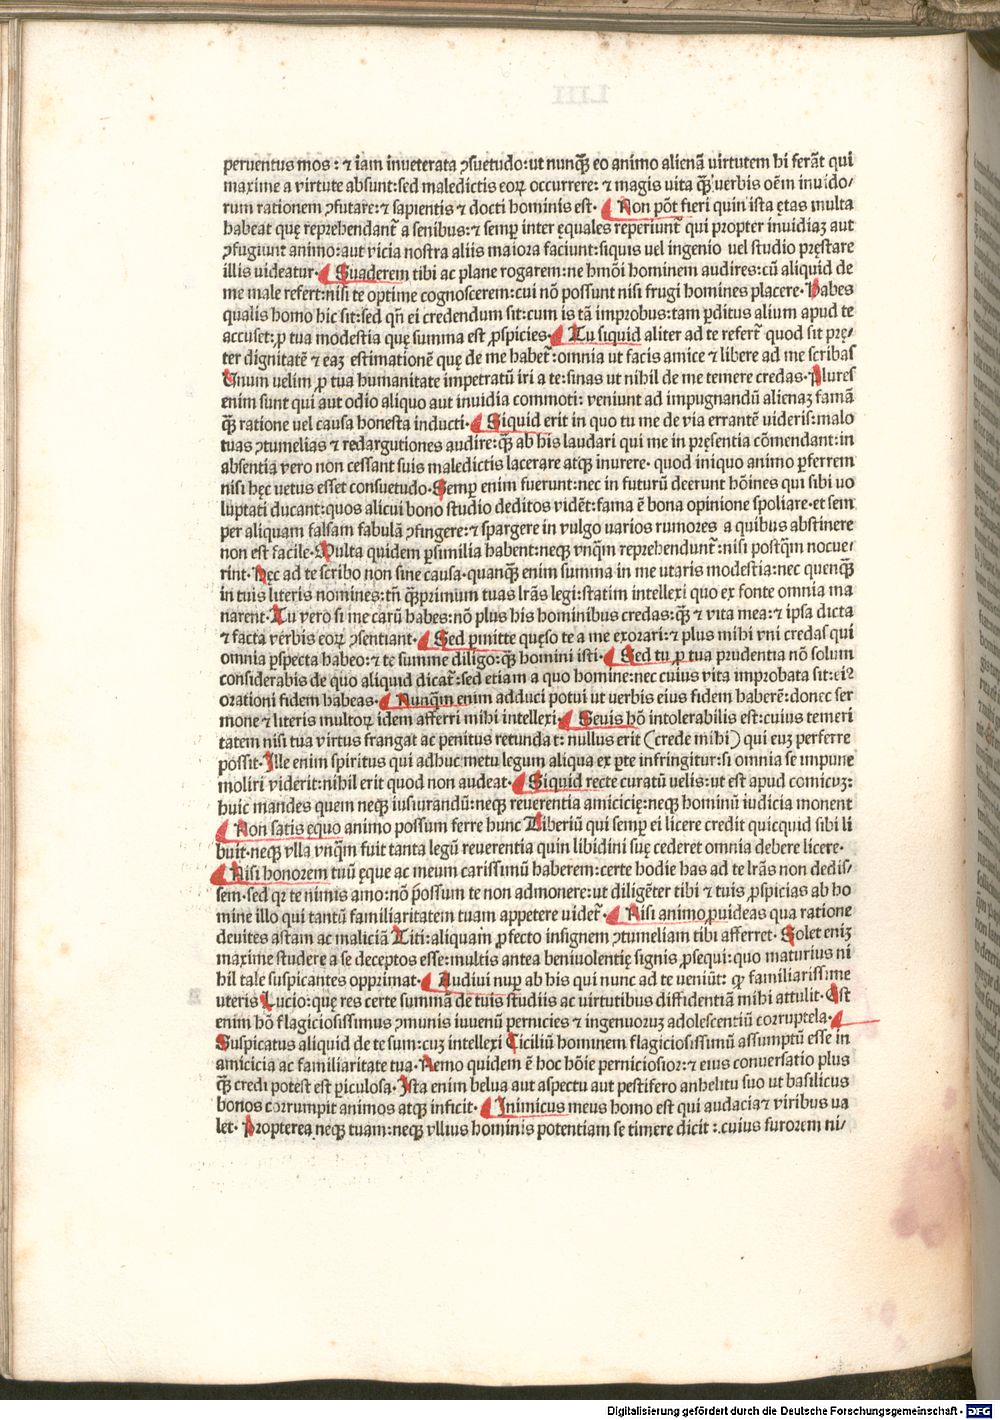 peruentus mos: ⁊ iam inueterata ꝯsuetudo: ut nunqᷓȝ eo animo alienā uirtutem hi ferāt qui
maxime a virtute absunt: sed maledictis eoꝝ occurrere: ⁊ magis uita qᷓȝ uerbis oēm inuido/
rum rationem ꝯfutare: ⁊ sapientis ⁊ docti hominis est. Non pōt fieri quin ista ętas multa
habeat quę reprehendant̄ a senibus: ⁊ semꝑ inter ęquales reperiunt̄ qui propter inuidiaȝ aut
ꝯfugiunt animo: aut vicia nostra aliis maiora faciunt: siquis uel ingenio uel studio pręstare
illis uideatur. Suaderem tibi ac plane rogarem: ne hmōi hominem audires: cū aliquid de
me male refert: nisi te optime cognoscerem: cui nō possunt nisi frugi homines placere. Habes
qualis homo hic sit: sed qn̄ ei credendum sit: cum is tā improbus: tam ꝑditus alium apud te
accuset: ꝑ tua modestia quę summa est ꝓspicies. Tu siquid aliter ad te refert̄ quod sit pręː
ter dignitatē ⁊ eaȝ estimationē quę de me habet̄: omnia ut facis amice ⁊ libere ad me scribas
Unum velim ꝑ tua humanitate impetratū iri a te: sinas ut nihil de me temere credas. Plures
enim sunt qui aut odio aliquo aut inuidia commoti: veniunt ad impugnandū alienaȝ famā
qᷓȝ ratione vel causa honesta inducti. Siquid erit in quo tu me de via errantē uideris: malo
tuas ꝯtumelias ⁊ redargutiones audire: qᷓȝ ab his laudari qui me in pręsentia cōmendant: in
absentia vero non cessant suis maledictis lacerare atqꝫ inurere. quod iniquo animo ꝑferrem
nisi hęc uetus esset consuetudo. Semꝑ enim fuerunt: nec in futurū deerunt hōines qui sibi uo
luptati ducant: quos alicui bono studio deditos vidēt: fama ē bona opinione spoliare. et sem
per aliquam falsam fabulā ꝯfingere: ⁊ spargere in vulgo uarios rumores a quibus abstinere
non est facile. Multa quidem ꝑsimilia habent: neqꝫ vnqᷓm reprehendunt̄: nisi postqᷓm nocue/
rint. Hęc ad te scribo non sine causa. quanqᷓȝ enim summa in me utaris modestia: nec quenqᷓȝ
in tuis literis nomines: tn̄ qᷓȝprimum tuas lr̄as legi: statim intellexi quo ex fonte omnia ma
narent. Tu vero si me carū habes: nō plus his hominibus credas: qᷓȝ ⁊ vita mea: ⁊ ipsa dicta
⁊ facta verbis eoꝝ ꝯsentiant. Sed ꝑmitte quęso te a me exorari: ⁊ plus mihi vni credas qui
omnia ꝑspecta habeo: ⁊ te summe diligo: qᷓȝ homini isti. Sed tu ꝑ tua prudentia nō solum
considerabis de quo aliquid dicat̄: sed etiam a quo homine: nec cuius vita improbata sit: eiꝰ
orationi fidem habeas. Nunqᷓm enim adduci potui ut verbis eius fidem haberē: donec ser
mone ⁊ literis multoꝝ idem afferri mihi intellexi. Seuis hō intolerabilis est: cuius temeri
tatem nisi tua virtus frangat ac penitus retundat: nullus erit (crede mihi) qui euȝ perferre
possit. Ille enim spiritus qui adhuc metu legum aliqua ex ꝑte infringitur: si omnia se impune
moliri viderit: nihil erit quod non audeat. Siquid recte curatū velis: ut est apud comicuȝ:
huic mandes quem neqꝫ iusiurandū: neqꝫ reuerentia amicicię: neqꝫ hominū iudicia monent
Non satis ęquo animo possum ferre hunc Tiberiū qui semꝑ ei licere credit quicquid sibi li
buit. neqꝫ vlla vnqᷓm fuit tanta legū reuerentia quin libidini suę cederet omnia debere licere.
Nisi honorem tuū ęque ac meum carissimū haberem: certe hodie has ad te lr̄as non dedis/
sem. sed qꝛ te nimis amo: nō possum te non admonere: ut diligēter tibi ⁊ tuis ꝓspicias ab ho
mine illo qui tantū familiaritatem tuam appetere uidet̄. Nisi animo ꝓuideas qua ratione
deuites astam ac maliciā Titi: aliquam ꝓfecto insignem ꝯtumeliam tibi afferret. Solet eniȝ
maxime studere a se deceptos esse: multis antea beniuolentię signis ꝓsequi: quo maturius ni
hil tale suspicantes opprimat. Audiui nuꝑ ab his qui nunc ad te veniūt: ꝙ familiarissime
uteris Lucio: quę res certe summā de tuis studiis ac virtutibus diffidentiā mihi attulit. Est
enim hō flagiciosissimus ꝯmunis iuuenū pernicies ⁊ ingenuoruȝ adolescentiū corruptela.
Suspicatus aliquid de te sum: cuȝ intellexi Ciciliū hominem flagiciosissimū assumptū esse in
amicicia ac familiaritate tua. Nemo quidem ē hoc hōie perniciosior: ⁊ eius conuersatio plus
qᷓȝ credi potest est ꝑiculosa. Ista enim belua aut aspectu aut pestifero anhelitu suo ut basilicus
bonos corrumpit animos atqꝫ inficit. Inimicus meus homo est qui audacia ⁊ viribus ua
let. Propterea neqꝫ tuam: neqꝫ vllius hominis potentiam se timere dicit: cuius furorem ni/
Digitalisierung gefördert durch die Deutsche Forschungsgemeinschaft - DFG